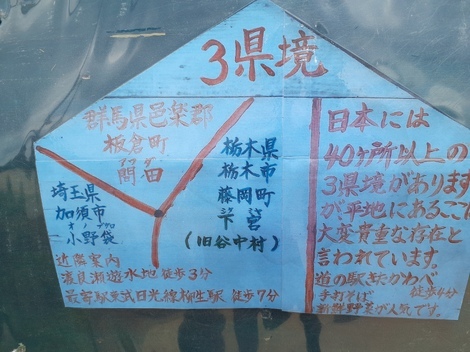 3県境
群馬県邑楽郡
板倉町
間田
埼玉県
加須市
オノブクロ
小野袋
栃木県
栃木市
藤岡町
下宮
(旧谷中村)
近隣案内
渡良瀬遊水地 徒歩3分
最寄駅東武日光線柳生駅 徒歩7分
日本には
40ヶ所以上の
3県境があります
が平地にあるここが
大変貴重な存在と
言われています
道の駅きたかわべ
徒歩4分
手打そば
新鮮野菜が人気です。